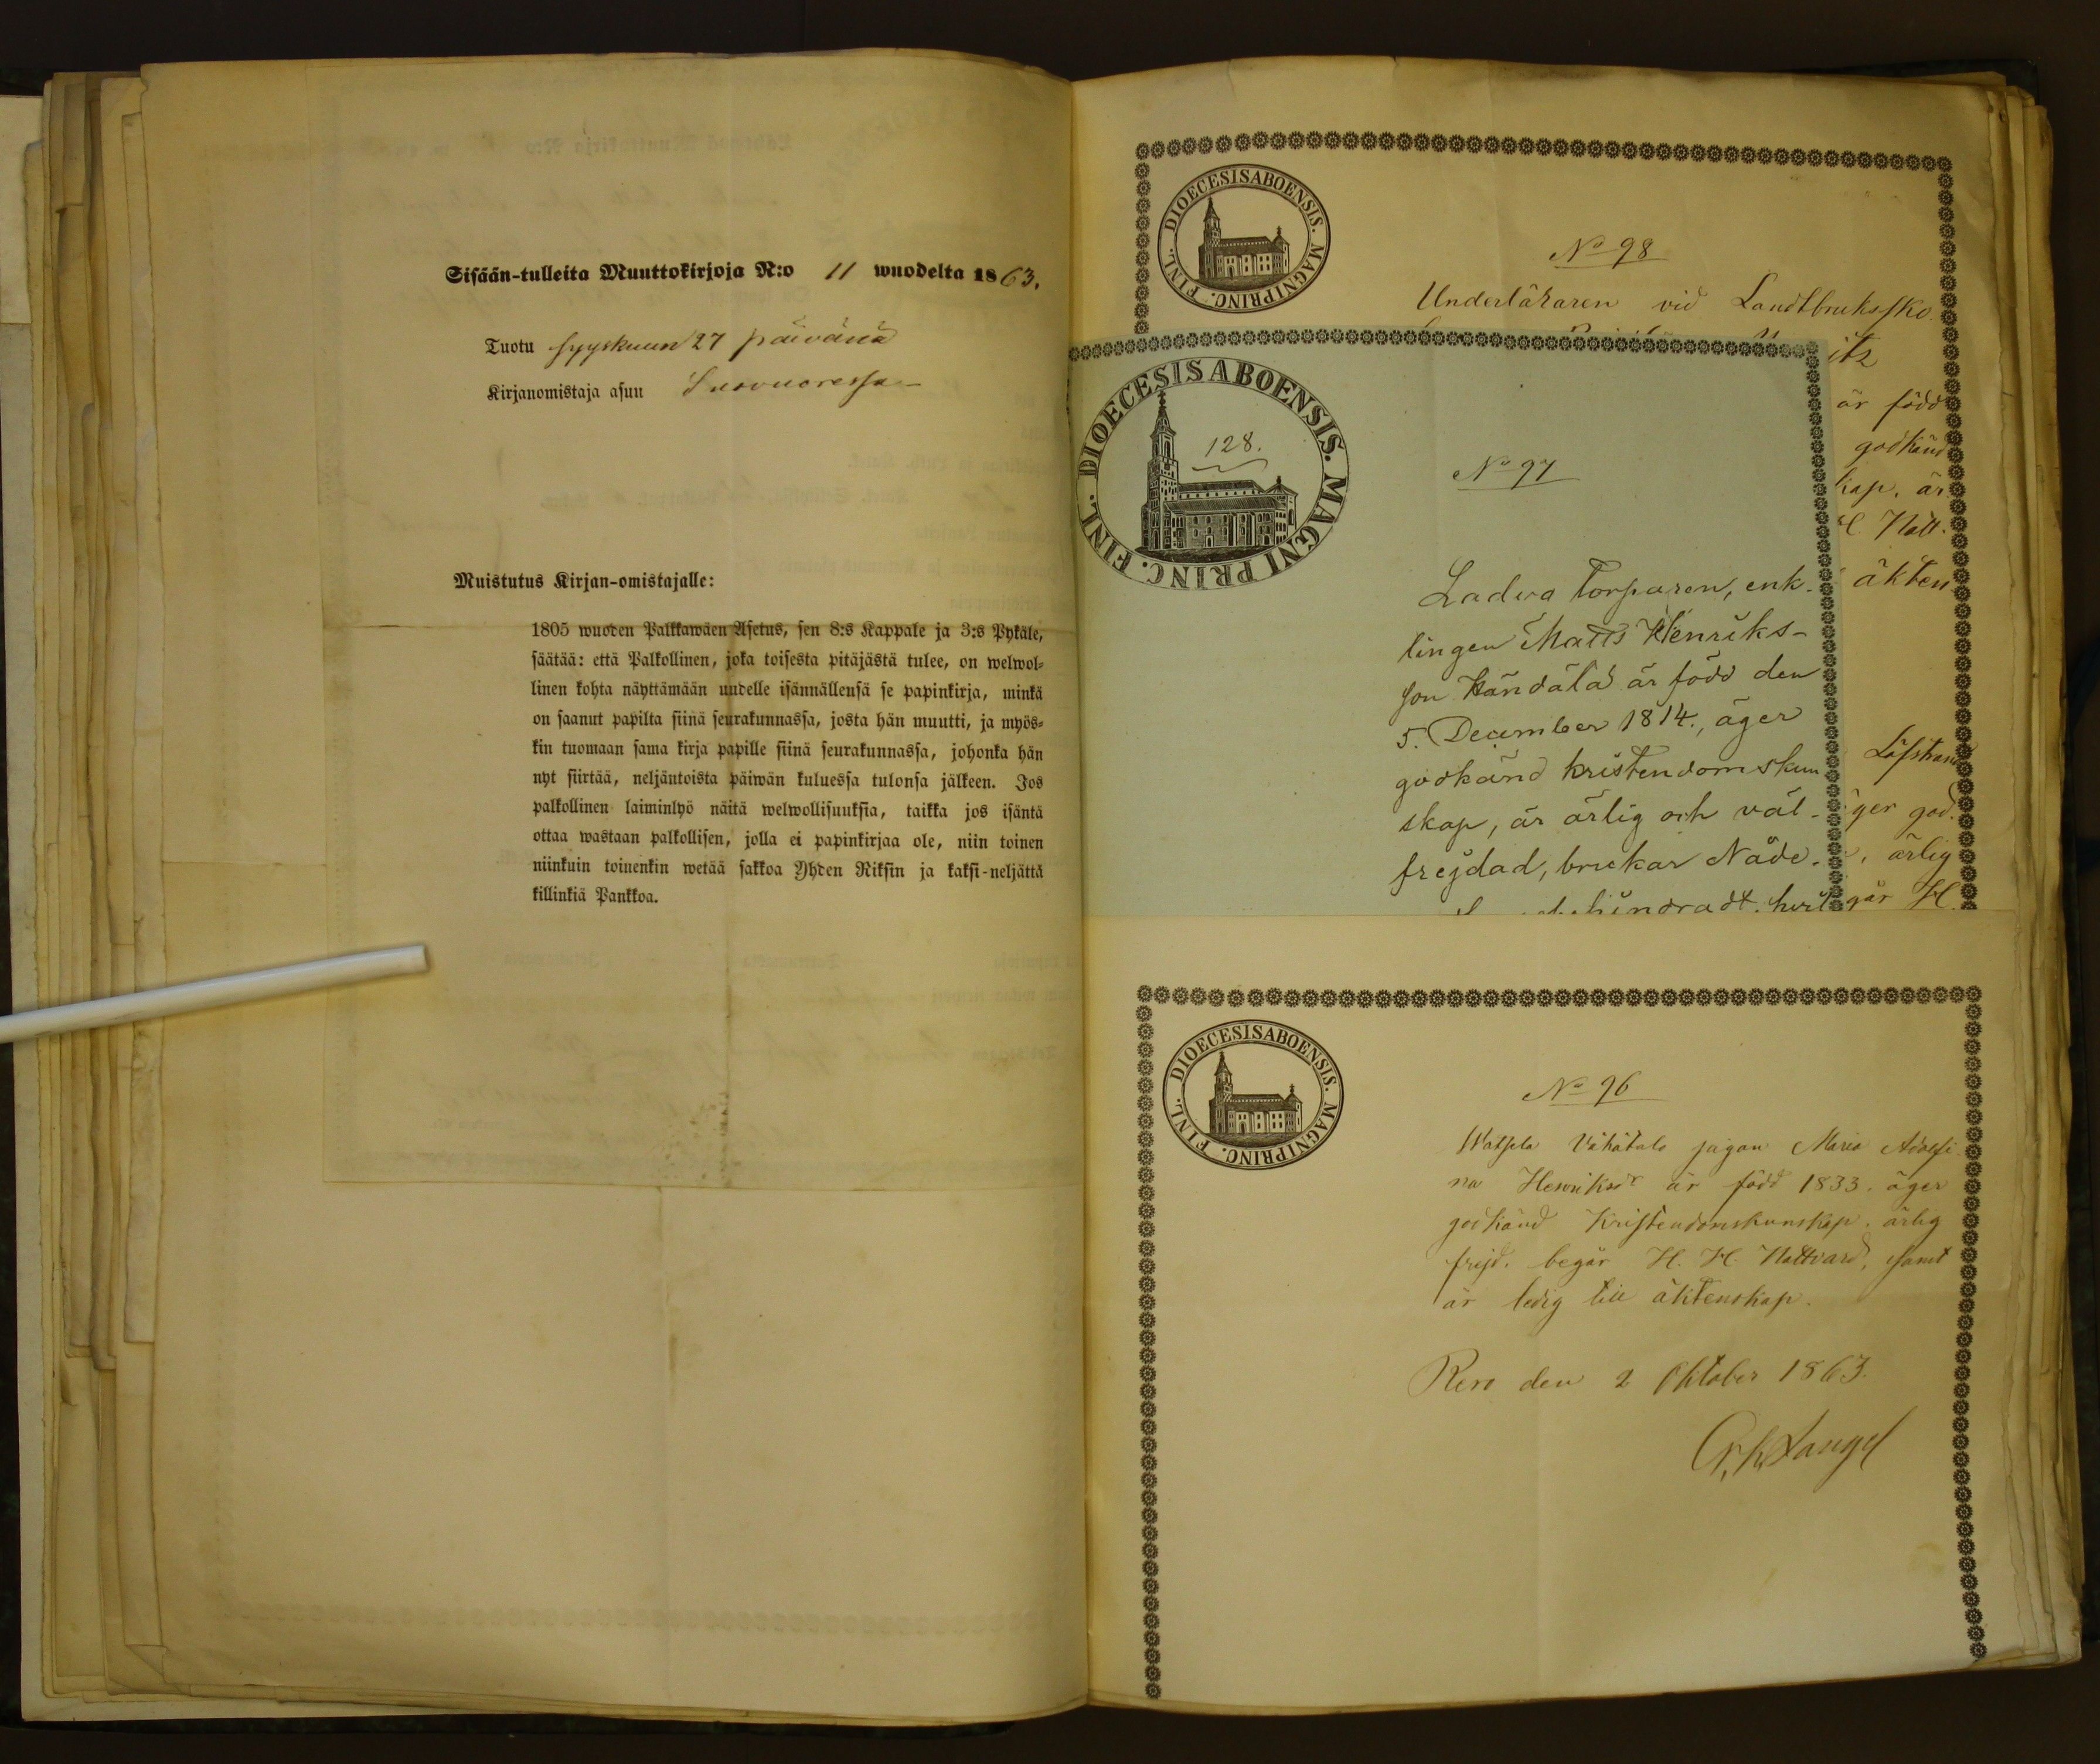 Sisään-tulleita Muuttokirjoja N:o 11 wuodelta 1863.
Tuotu syyskuun 27 päivänä
Kirjanomistaja asuu Suovuoressa
Muistutus Kirjan-omistajalle:
1805 wuoden Palkkawäen Asetus, sen 8:s Kappale ja 3:s Pykäle,
säätää: että Palkollinen, joka toisesta pitäjästä tulee, on welwol-
linen kohta näyttämään uudelle isännällensä se papinkirja, minkä
on saanut papilta siinä seurakunnassa, josta hän muutti, ja myös-
kin tuomaan sama kirja papille siinä seurakunnassa, johonka hän
nyt siirtää, neljäntoista päiwän kuluessa tulonsa jälkeen. Jos
palkollinen laiminlyö näitä welwollisuuksia, taikka jos isäntä
ottaa wastaan palkollisen, jolla ei papinkirjaa ole, niin toinen
niinkuin toinenkin wetää sakkoa Yhden Riksin ja kaksi-neljättä
killinkiä Pankkoa.
DIOECESIS ABOENSIS. MAGNI PRINC. FINL.
No 98
Underläraren vid Landtbrukssko
itz
är född
godkänd
kap, är
Natt.
äkten
DIOECESIS ABOENSIS. MAGNI PRINC. FINL.
128.
No 97
Ladva Torparen, enk-
lingen Matts Henriks-
son Kändälä är född den
5. December 1814., äger
godkänd kristendomskun
skap, är ärlig och väl-
frejdad, brukar Nåde.
hindradt.
Löfstrand
ger god.
ärlig
går H.
DIOECESIS ABOENSIS. MAGNI PRINC. FINL.
No 96
Watsela Vähätalo pigan Maria Adolfi-
na Henriksdr är född 1833. äger
godkänd Kristendomskunskap. ärlig
frejd. begår H. H. Nattvard, samt
är ledig till äktenskap.
Rero den 2 Oktober 1863.
Langel